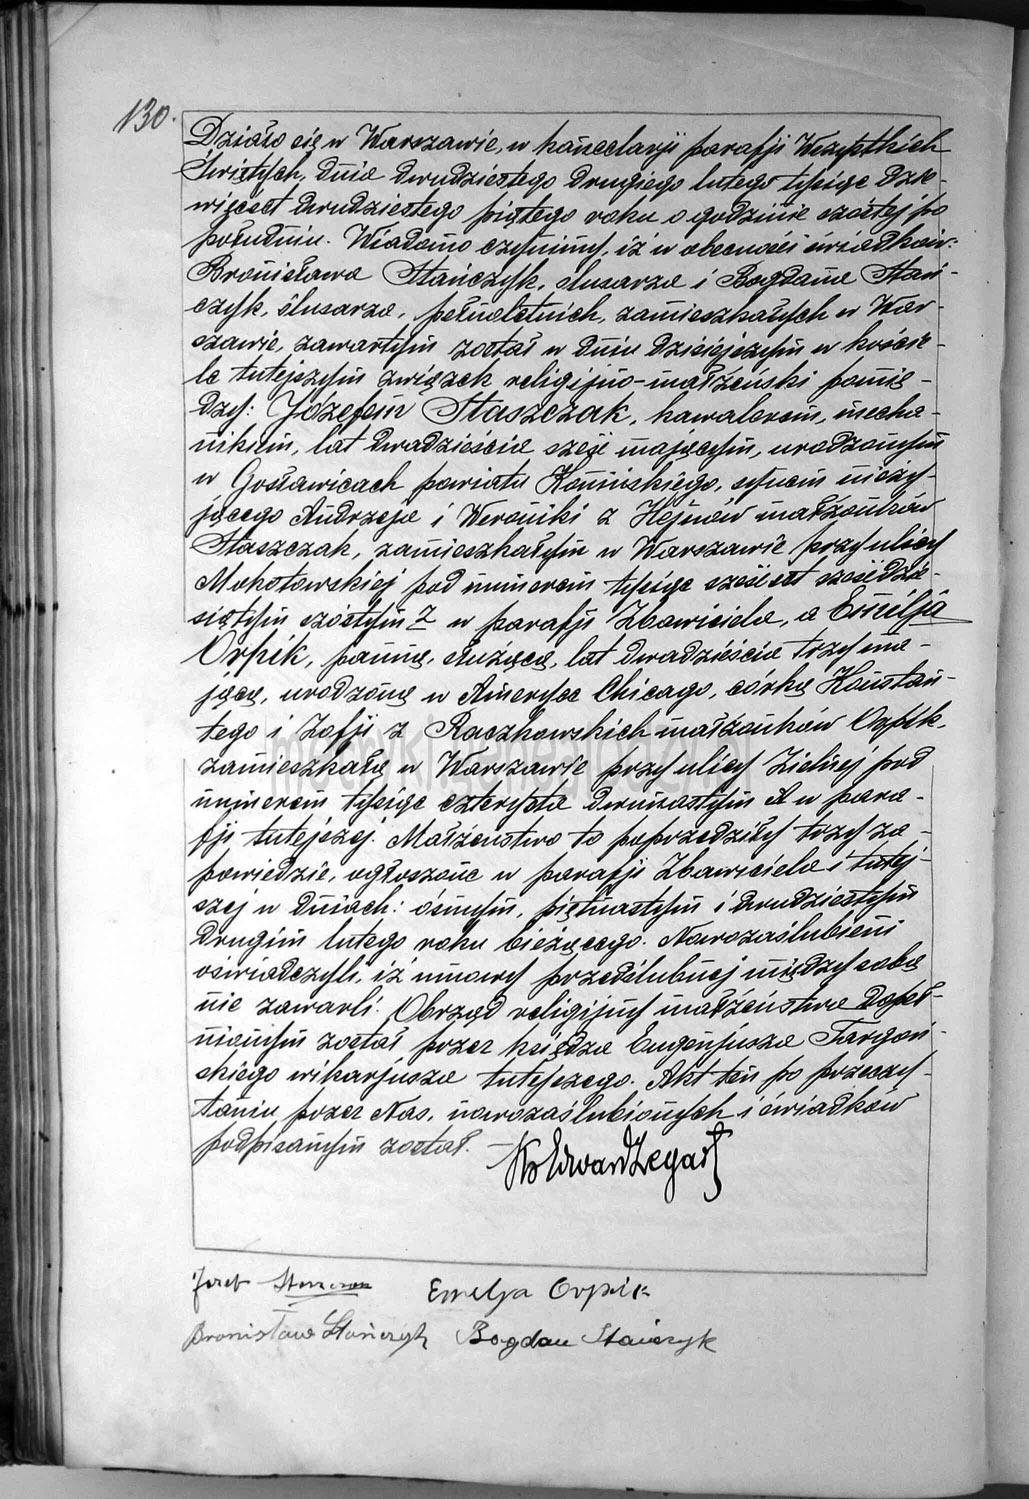 130.
Działo się w Warszawie, w kancelarji parafji Wszystkich
Świętych, dnia dwudziestego drugiego lutego tysiąc dzie-
więćset dwudziestego piątego roku o godzinie szóstej po
południu. Wiadomo czynimy, iż w obecności świadków:
Bronisława Stańczyk, ślusarza i Bogdana Stań-
czyk, ślusarza, pełnoletnich, zamieszkałych w War-
szawie, zawartym został w dniu dzisiejszym w koście-
le tutejszym związek religijno-małżeński pomię-
dzy: Józefem Staszczak, kawalerem, mecha-
nikiem, lat dwadzieścia sześć mającym, urodzonym
w Gosławicach powiatu Konińskiego, synem nieży-
jącego Andrzeja i Weroniki z Hejnów małżonków
Staszczak, zamieszkałym w Warszawie przy ulicy
Mokotowskiej pod numerem tysiąc sześćset sześćdzie-
siątym szóstym z w parafji Zbawiciela, a Emilją
Orpik, panną, służącą, lat dwadzieścia trzy ma-
jącą, urodzoną w Ameryce Chicago, córką Konstan-
tego i Zofji z Raczkowskich małżonków Orpik,
zamieszkałą w Warszawie przy ulicy Zielnej pod
numerem tysiąc czterysta dwunastym A w para-
fji tutejszej. Małżeństwo to poprzedziły trzy za-
powiedzie, ogłoszone w parafji Zbawiciela i tutej-
szej w dniach: ósmym, piętnastym i dwudziestym
drugim lutego roku bieżącego. Nowozaślubieni
oświadczyli, iż umowy przedślubnej między sobą
nie zawarli. Obrząd religijny małżeństwa dopeł-
nionym został przez księdza Eugenjusza Targoń-
skiego wikarjusza tutejszego. Akt ten po przeczy-
taniu przez Nas, nowozaślubionych i świadków
podpisanym został.
Ks Edward Żegart
Józef Staszczak Emelja Orpik
Bronisław Stańczyk Bogdan Stańczyk